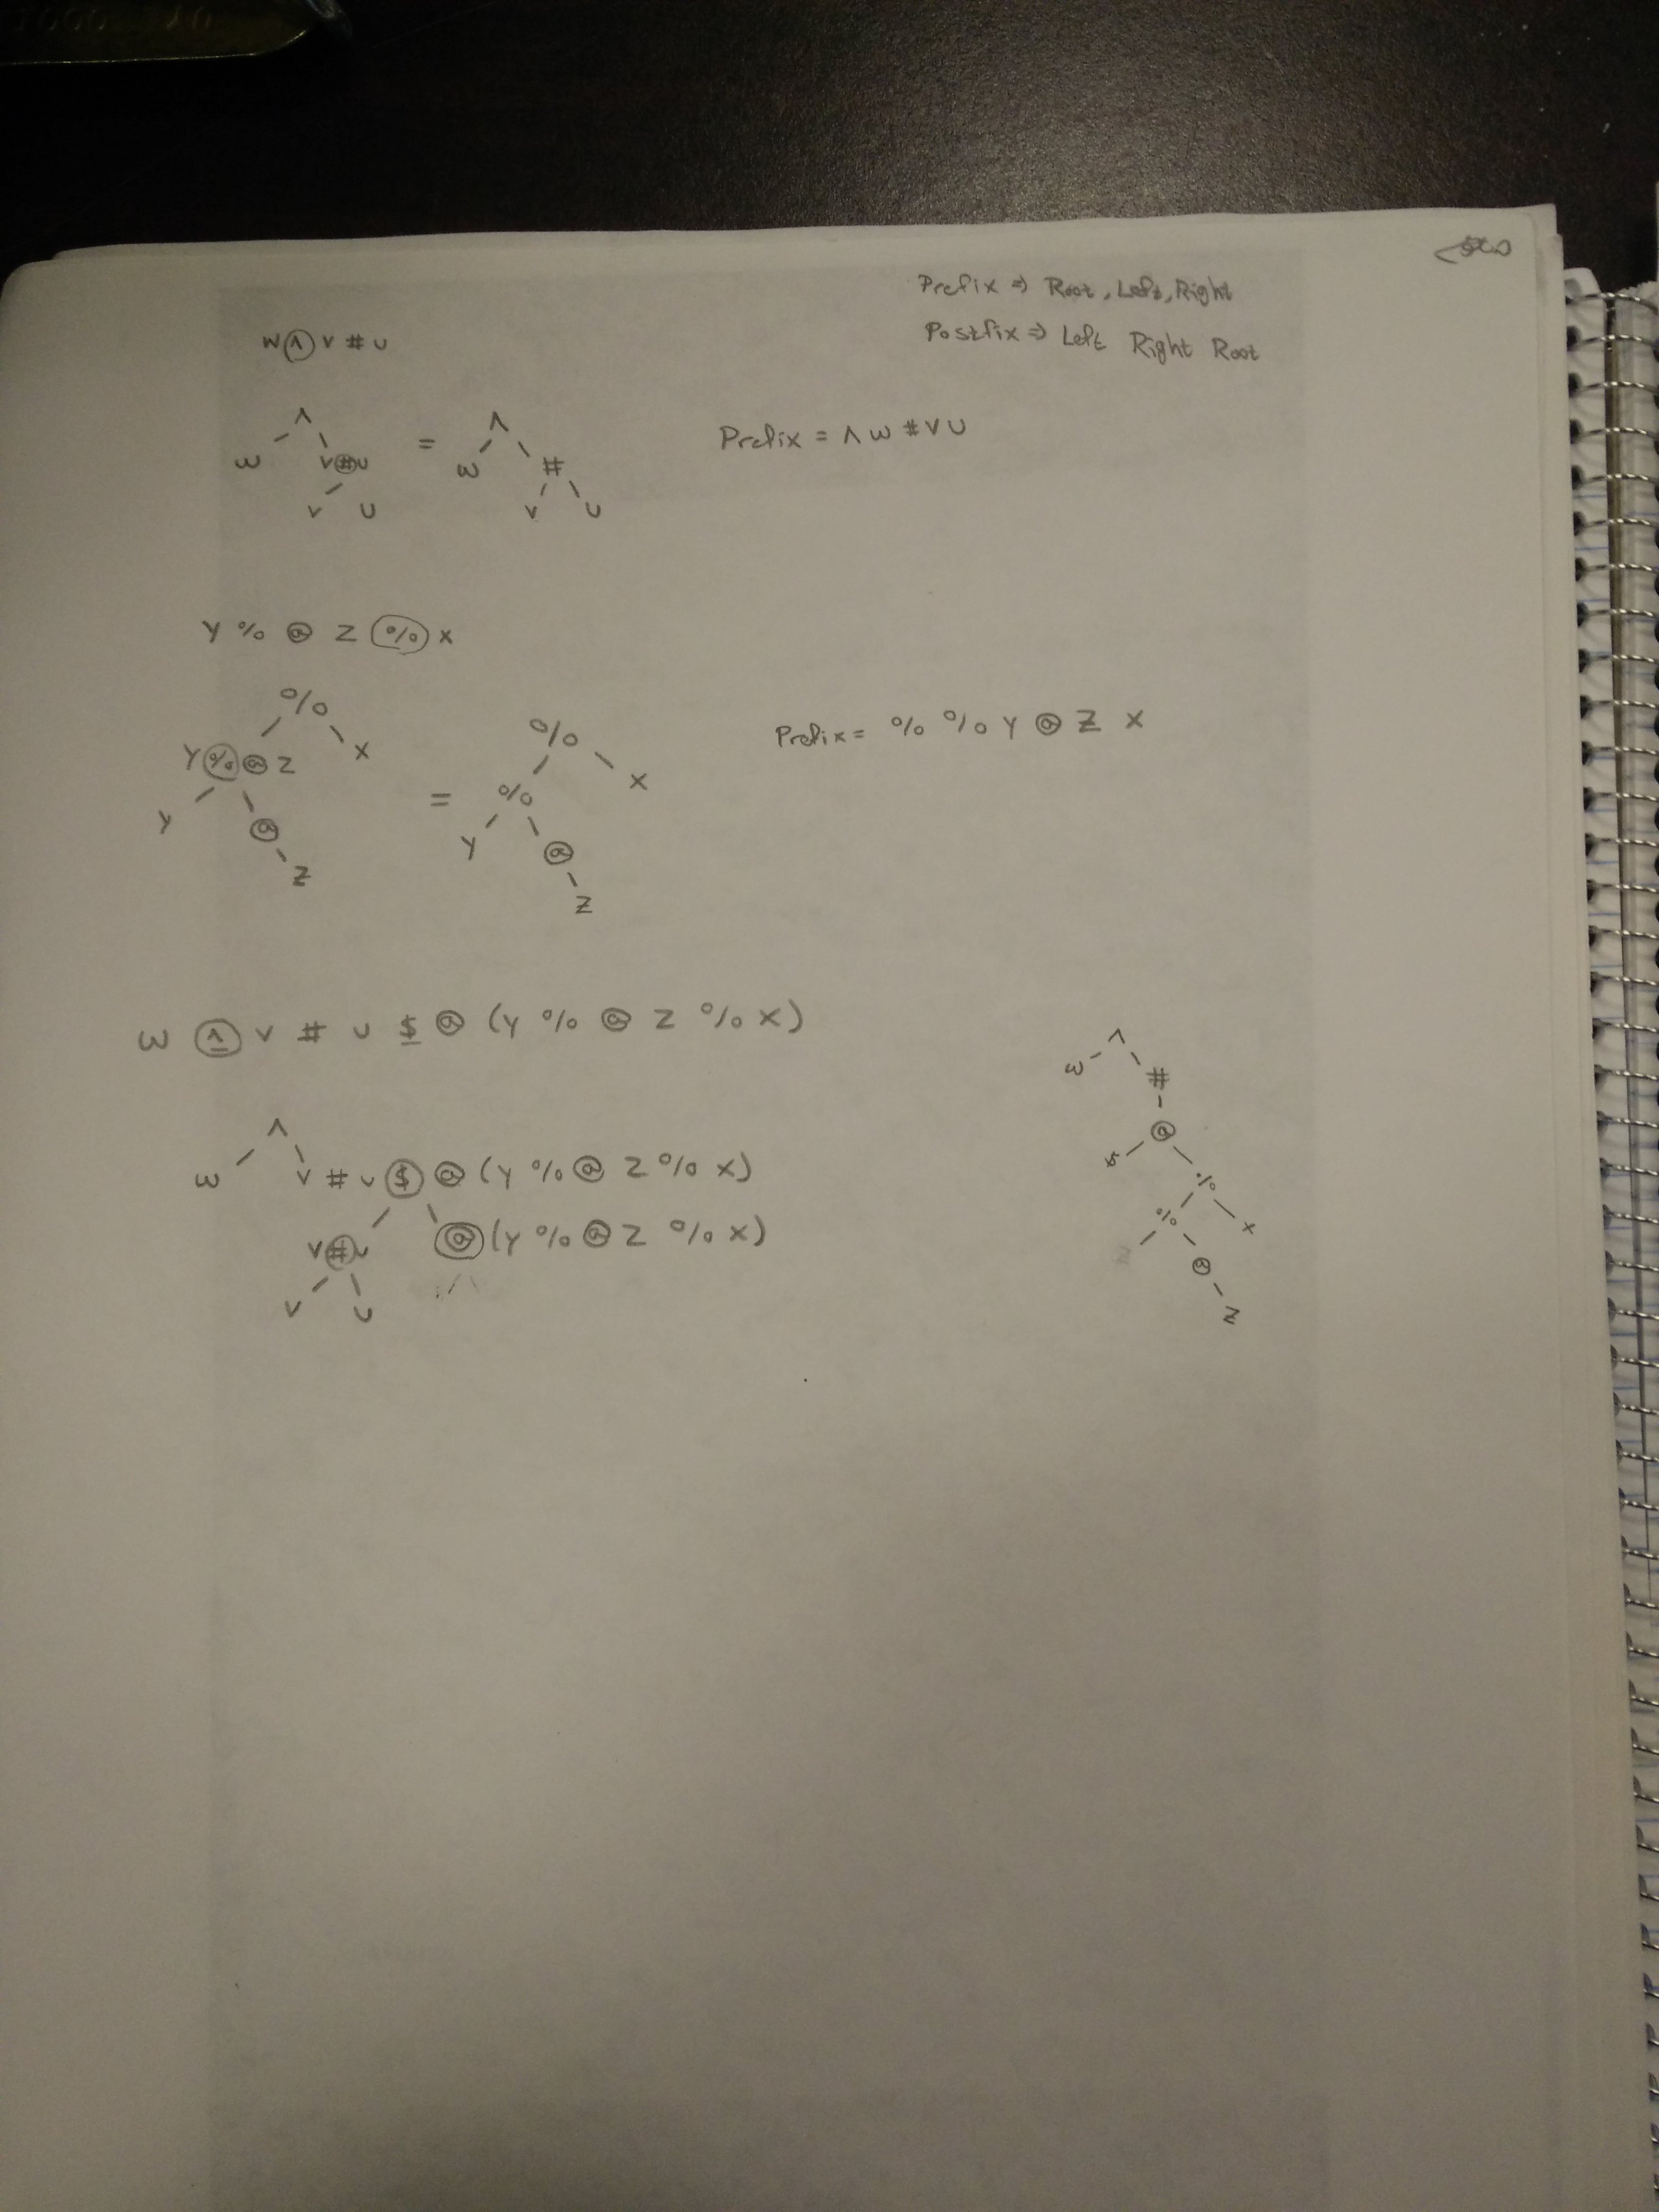 Prefix ⇒ Root, Left, Right
Postfix ⇒ Left Right Root
W ∧ V # U
∧
W V#U
V U
=
∧
W #
V U
Prefix = ∧ W # V U
Y % @ Z % X
%
Y % @ Z X
Y @
Z
=
%
% X
Y @
Z
Prefix = % % Y @ Z X
W ∧ V # U $ @ (Y % @ Z % X)
∧
W V # U $ @ (Y % @ Z % X)
V#U @ (Y % @ Z % X)
V U
∧
W #
@
$ %
% X
@
Z